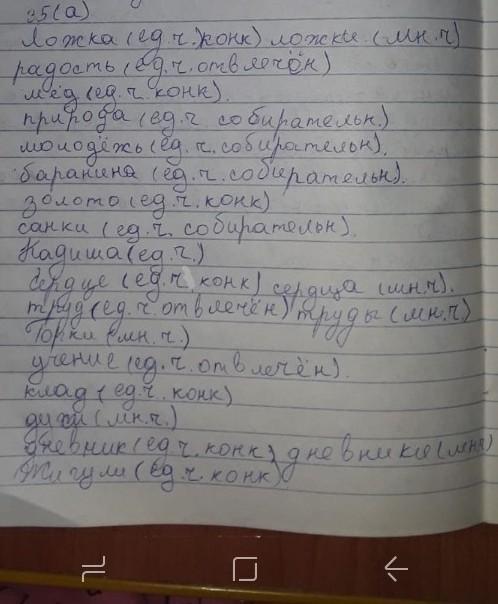 35(а)
Ложка (ед.ч.) конк) ложки (мн.ч)
радость (ед.ч. отвлечён)
мёд (ед.ч. конк).
природа (ед.ч. собирательн.)
молодёжь (ед.ч. собирательн).
баранина (ед.ч. собирательн).
золото (ед.ч. конк)
санки (ед.ч. собирательн).
Кадиша (ед.ч.)
сердце (ед.ч. конк) сердца (мн.ч).
труд (ед.ч. отвлечён) труды (мн.ч)
Горки (мн.ч.)
учение (ед.ч. отвлечён).
клад (ед.ч. конк)
духи (мн.ч.)
дневник (ед.ч. конк) дневники (мнч)
Жигули (ед.ч. конк)